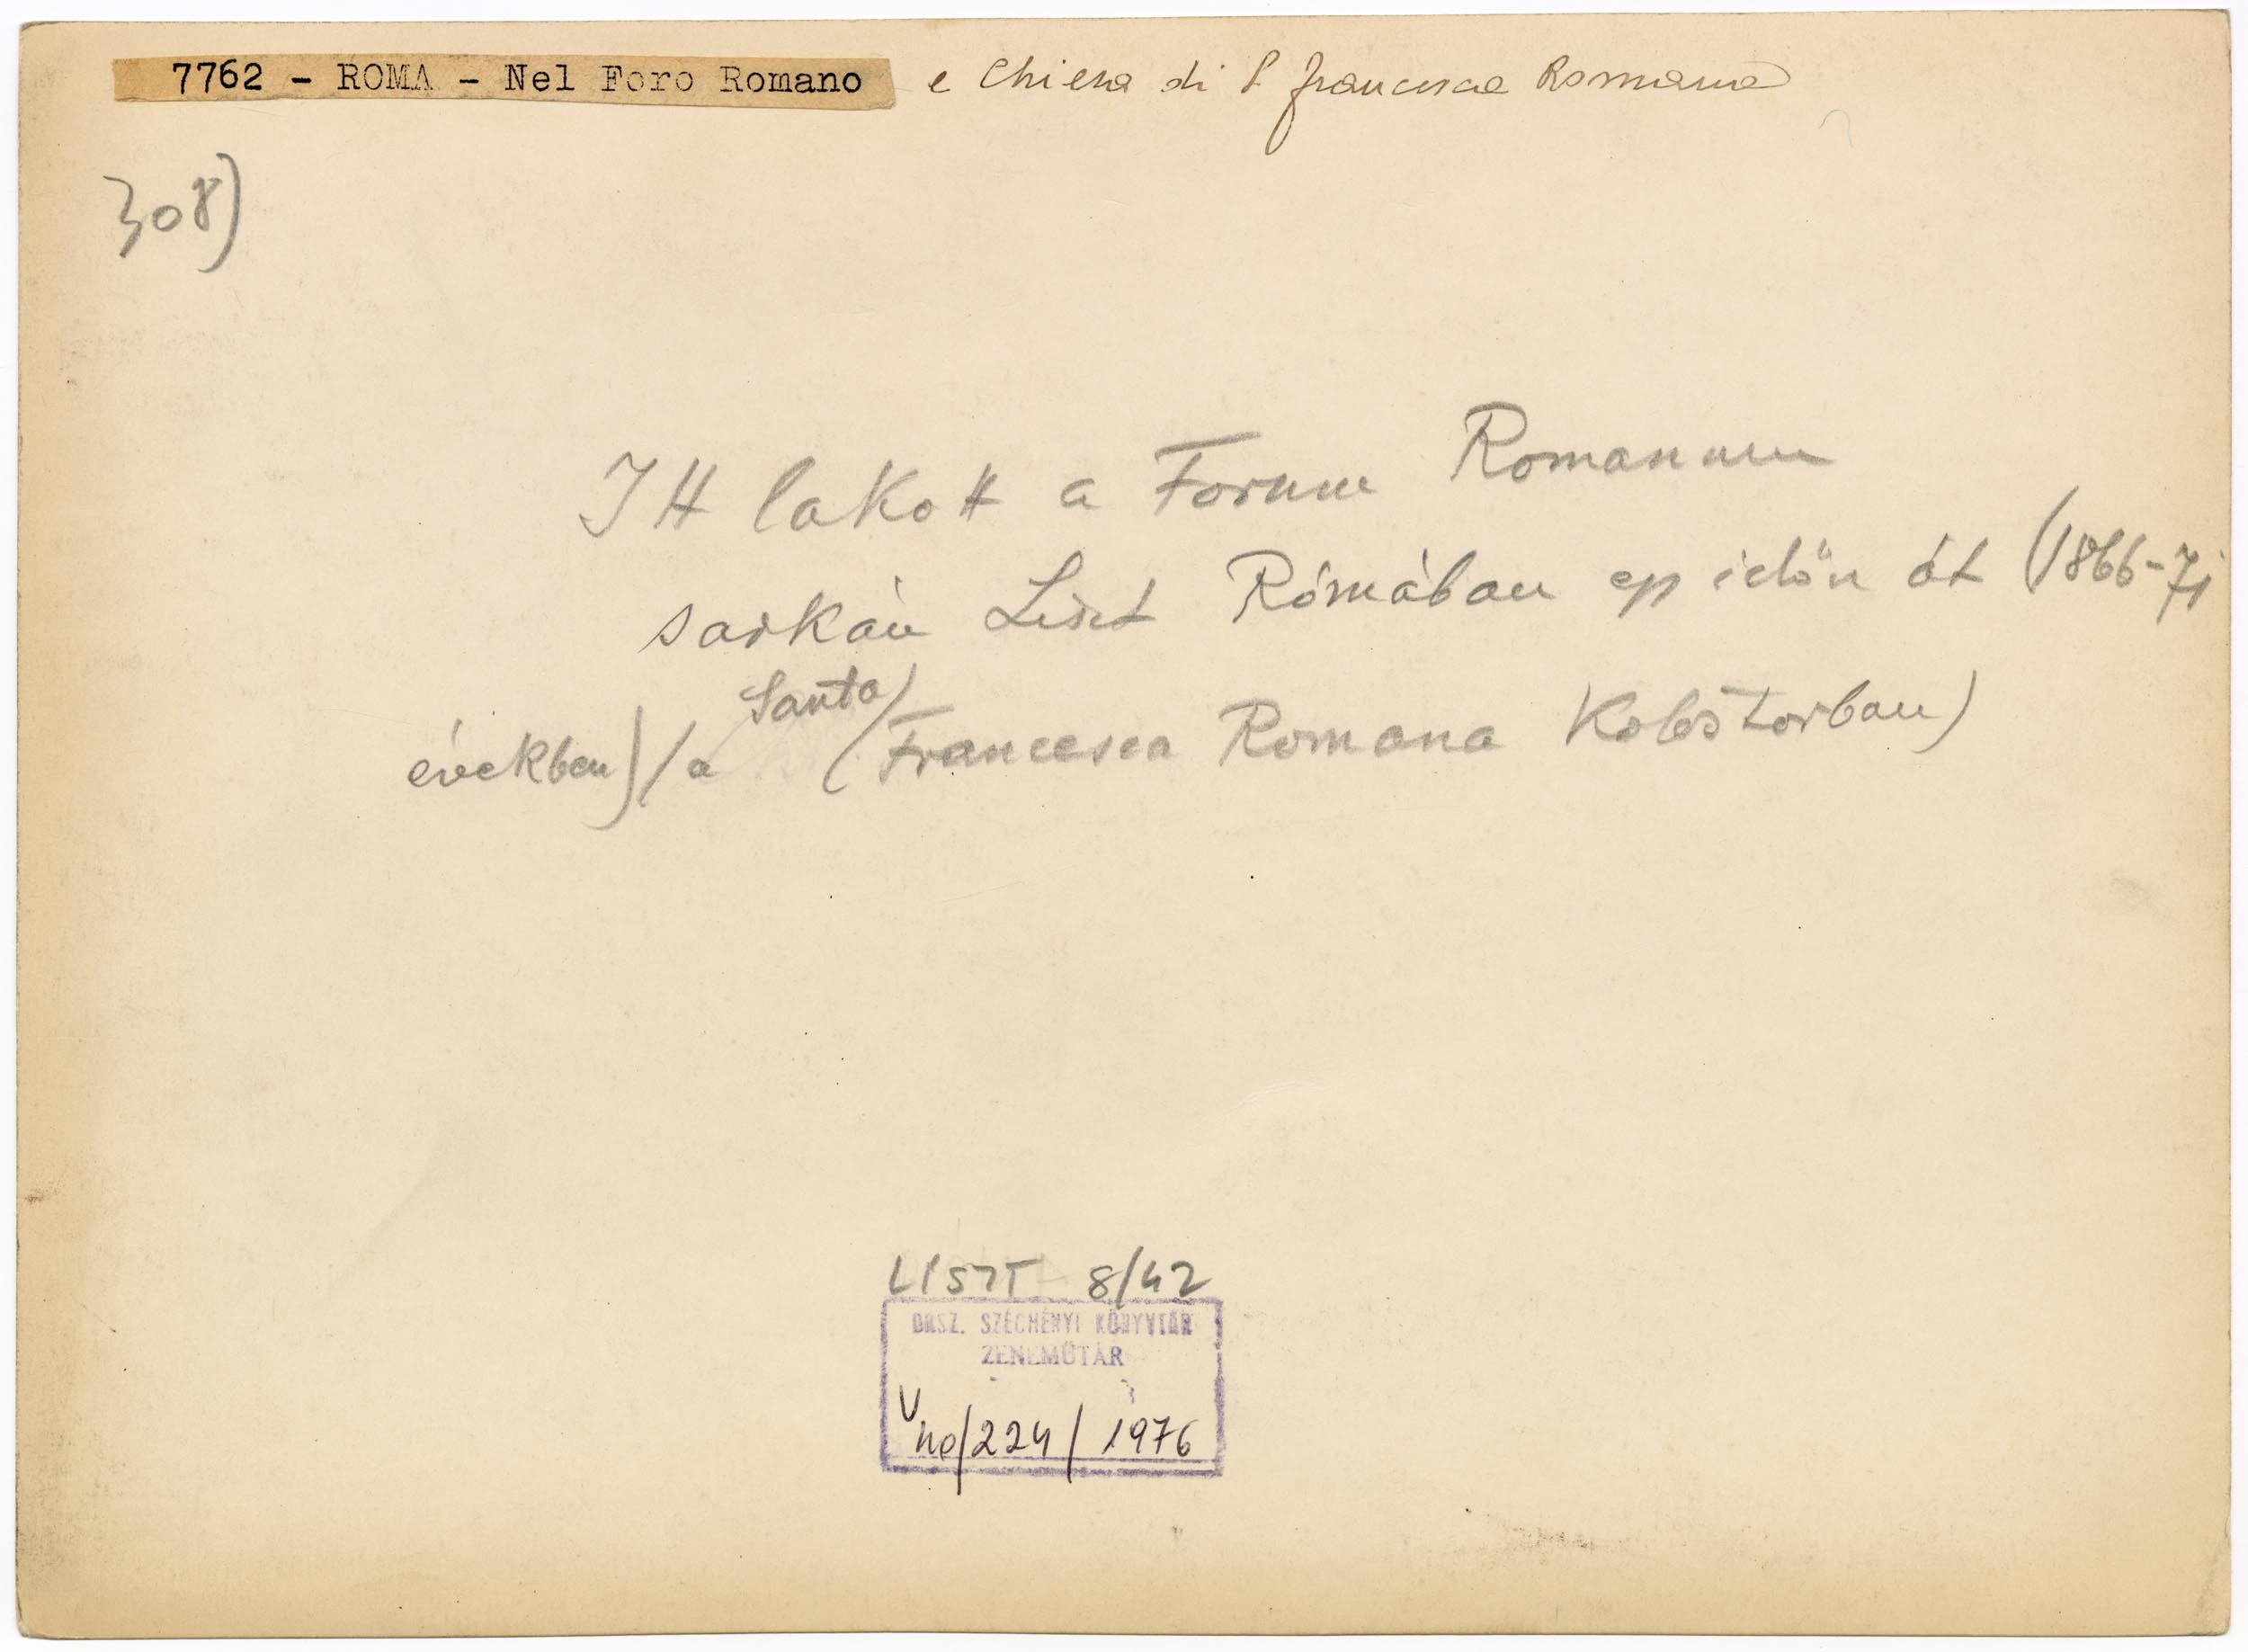 7762 - ROMA - Nel Foro Romano e Chiesa di S francesca Romana
308)
ITt lakott a Forum Romanum
sarkán Liszt Rómában egy időn át (1866-71
években) / a Santa Francesca Romana Kolostorban)
LISZT 8/42
ORSZ. SZÉCHÉNYI KÖNYVTÁR
ZENEMŰTÁR
V
no/224/1976